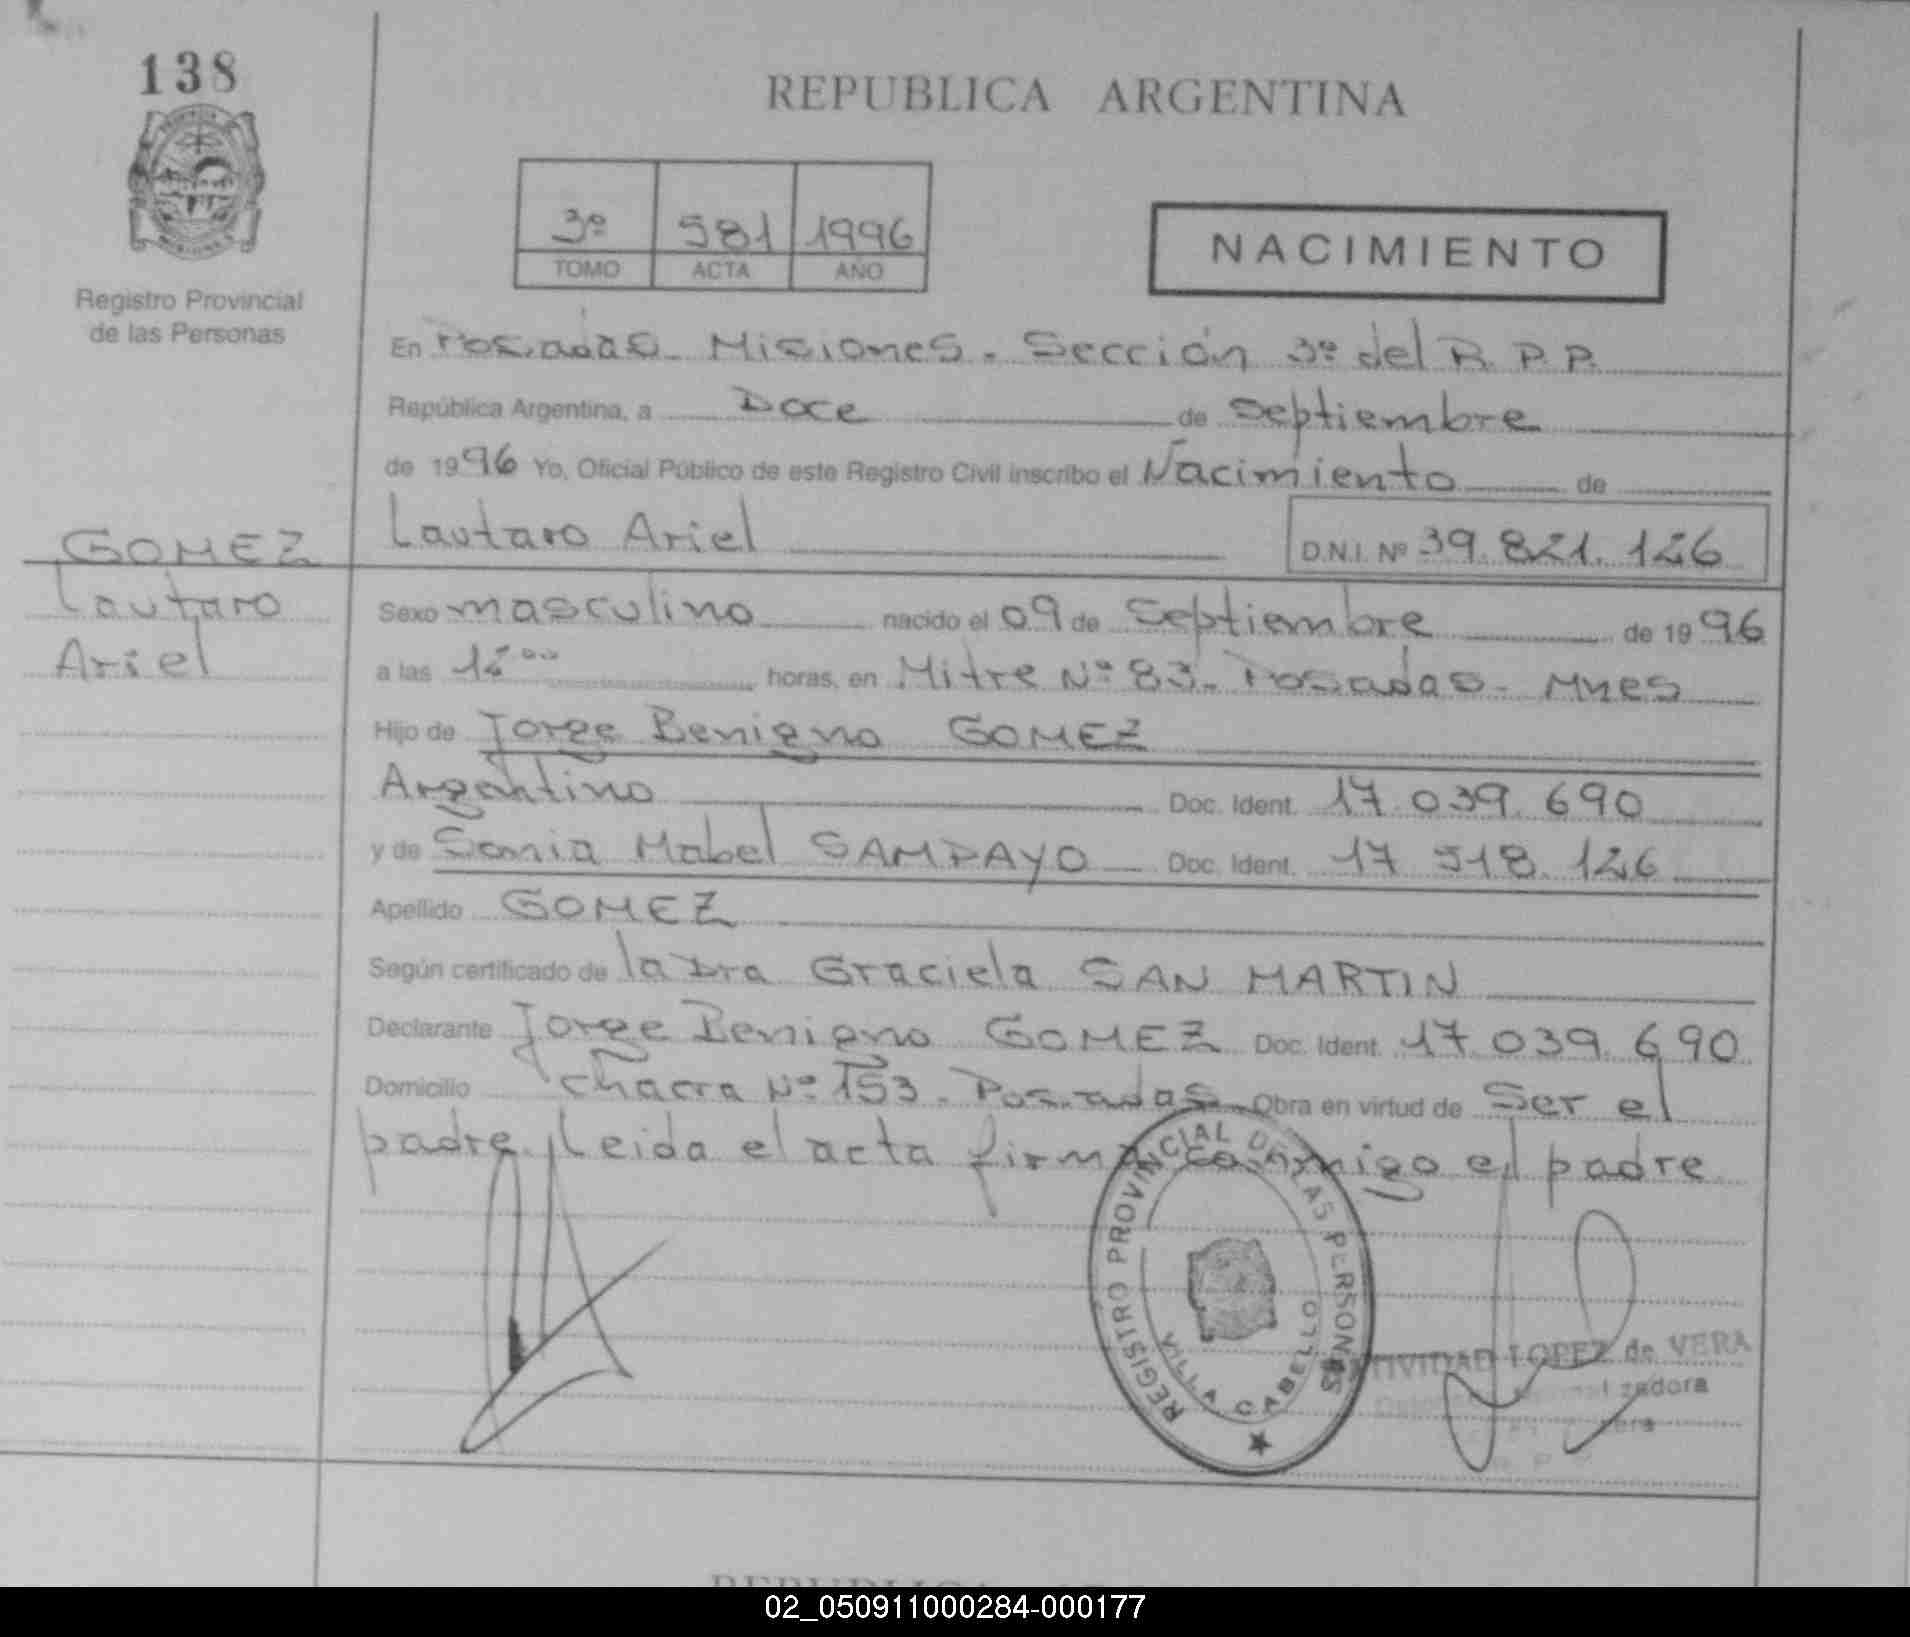 138
REPUBLICA ARGENTINA
3º 581 1996
TOMO ACTA AÑO
NACIMIENTO
Registro Provincial
de las Personas
En Posadas - Misiones - Sección 3º del R. P. P.
República Argentina, a Doce de Septiembre
de 1996 Yo, Oficial Público de este Registro Civil inscribo el Nacimiento de
Lautaro Ariel D.N.I. Nº 39.821.126
GOMEZ
Lautaro
Ariel
Sexo masculino nacido el 09 de Septiembre de 1996
a las 12 00 horas, en Mitre Nº 83 - Posadas - Mnes
Hijo de Jorge Benigno GOMEZ
Argentino Doc. Ident. 17.039.690
y de Sonia Mabel SAMPAYO Doc. Ident. 17 518 126
Apellido GOMEZ
Según certificado de la Dra Graciela SAN MARTIN
Declarante Jorge Benigno GOMEZ Doc. Ident. 17.039.690
Domicilio Chacra Nº 153 - Posadas Obra en virtud de Ser el
padre. Leida el acta firma conmigo el padre
REGISTRO PROVINCIAL DE LAS PERSONAS
VILLA CABELLO
LOPEZ de VERA
02_050911000284-000177